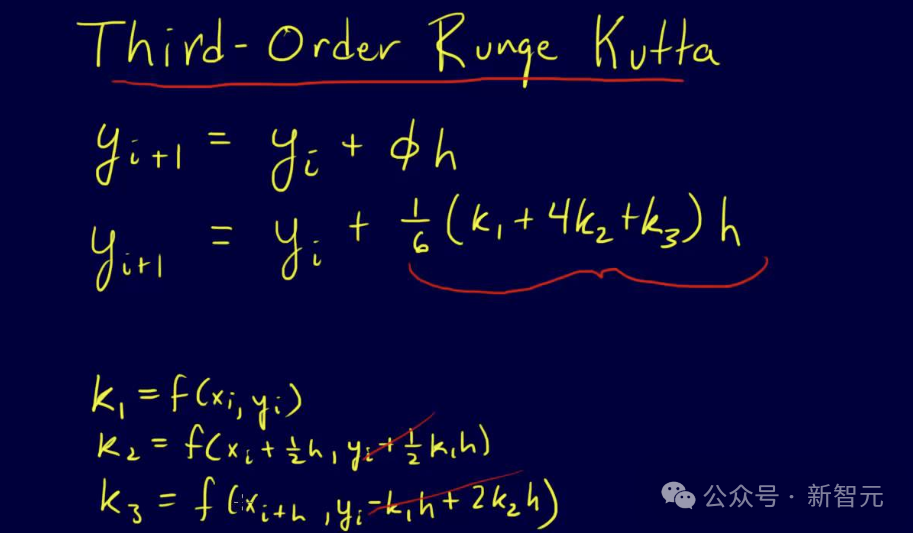 Third-Order Runge Kutta
y_{i+1} = y_i + ϕh
y_{i+1} = y_i + 1/6 (k_1 + 4k_2 + k_3) h
k_1 = f(x_i, y_i)
k_2 = f(x_i + 1/2 h, y_i + 1/2 k_1 h)
k_3 = f(x_{i+h}, y_i - k_1 h + 2k_2 h)
公众号 · 新智元